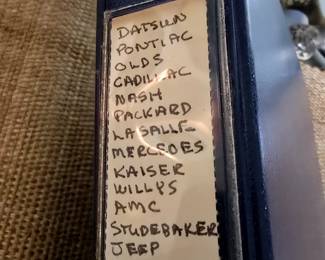 DATSUN
PONTIAC
OLDS
CADILLAC
NASH
PACKARD
LASALLE
MERCEDES
KAISER
WILLYS
AMC
STUDEBAKER
JEEP